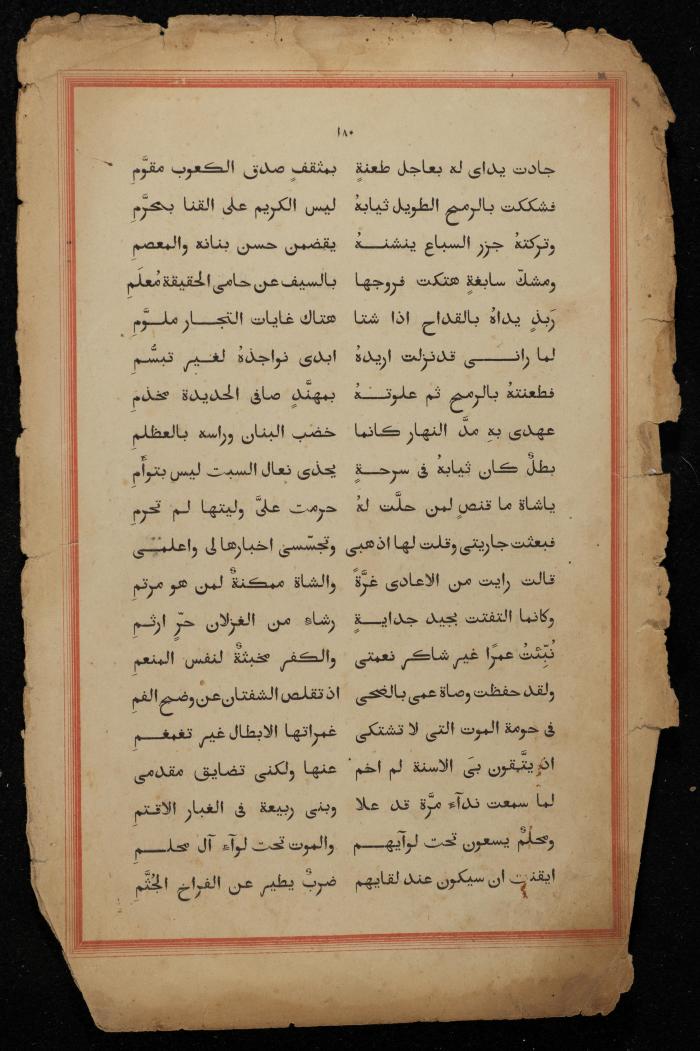 ١٨٠
جادت يداى له بعاجل طعنةٍ بمثقفٍ صدق الكعوب مقوَّمِ
فشككت بالرمح الطويل ثيابهُ ليس الكريم على القنا بمحرَّمِ
وتركتهُ جزر السباع ينشنــهُ يقضمن حسن بنانه والمعصمِ
ومشكّ سابغةٍ هتكت فروجها بالسيف عن حامى الحقيقة مُعلَمِ
رَبِذٍ يداهُ بالقداح اذا شتا هتاك غايات التجــار ملــوَّمِ
لما رانــى قد نزلت اريدهُ ابدى نواجذهُ لغيــر تبسُّــمِ
فطعنتهُ بالرمح ثم علوتــهُ بمهنَّدٍ صافى الحديدة مخذمِ
عهدى بهِ مدَّ النهار كانما خضب البنان وراسه بالعظلمِ
بطلٌ كان ثيابهُ فى سرحــةٍ يحذى نعال السبت ليس بتوأَمِ
ياشاة ما قنصٍ لمن حلَّت لهُ حرمت علىَّ وليتها لــم تحرمِ
فبعثت جاريتى وقلت لها اذهبى وتجسّسى اخبارها لى واعلمــى
قالت رايت من الاعادى غرَّةً والشاة ممكنةٌ لمن هو مرتمِ
وكانما التفتت بجيد جدايــةٍ رشاءِ من الغزلان حرٍّ ارثــمِ
نُبِّئتُ عمرًا غير شاكر نعمتى والكفر مخبثةٌ لنفس المنعمِ
ولقد حفظت وصاة عمى بالضحى اذ تقلص الشفتان عن وضح الفمِ
فى حومة الموت التى لا تشتكى غمراتها الابطال غير تغمغــمِ
اذ يتَّقون بىَ الاسنة لم اخم عنها ولكنى تضايق مقدمى
لما سمعت ندآء مرَّة قد علا وبنى ربيعة فى الغبار الاقتمِ
ومحلّمٌ يسعون تحت لوآيهــم والموت تحت لوآء آل محلــمِ
ايقنت ان سيكون عند لقايهم ضربٌ يطير عن الفراخ الجُثَّمِ